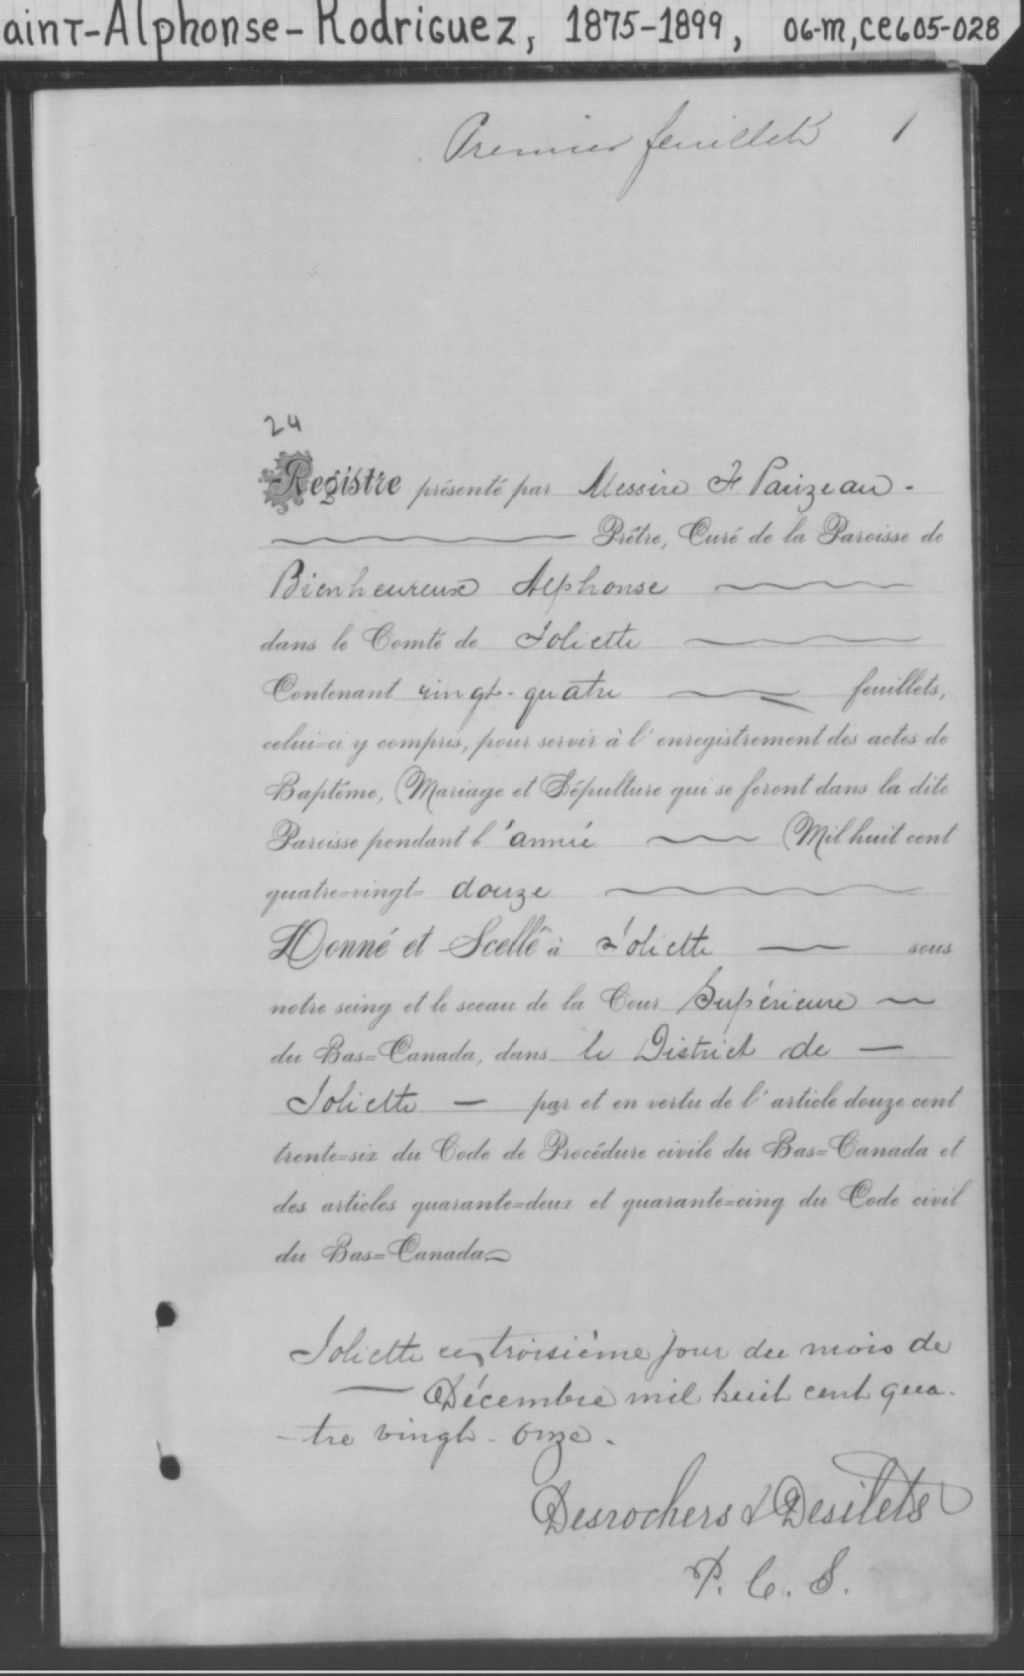 aint-Alphonse-Rodriguez, 1875-1899, 06-M, CE605-028
Premier feuillet 1
24
Registre présenté par Messire F. Parizeau -
Prêtre, Curé de la Paroisse de
Bienheureux Alphonse
dans le Comté de Joliette
Contenant vingt-quatre feuillets,
celui-ci y compris, pour servir à l'enregistrement des actes de
Baptême, Mariage et Sépulture qui se feront dans la dite
Paroisse pendant l'année Mil huit cent
quatre-vingt- douze
Donné et Scellé à Joliette sous
notre seing et le sceau de la Cour Supérieure
du Bas-Canada, dans le District de
Joliette par et en vertu de l'article douze cent
trente-six du Code de Procédure civile du Bas-Canada et
des articles quarante-deux et quarante-cinq du Code civil
du Bas-Canada
Joliette ce troisième jour du mois de
Décembre mil huit cent qua-
tre vingt-onze.
Desrochers & Desilets
P. C. S.